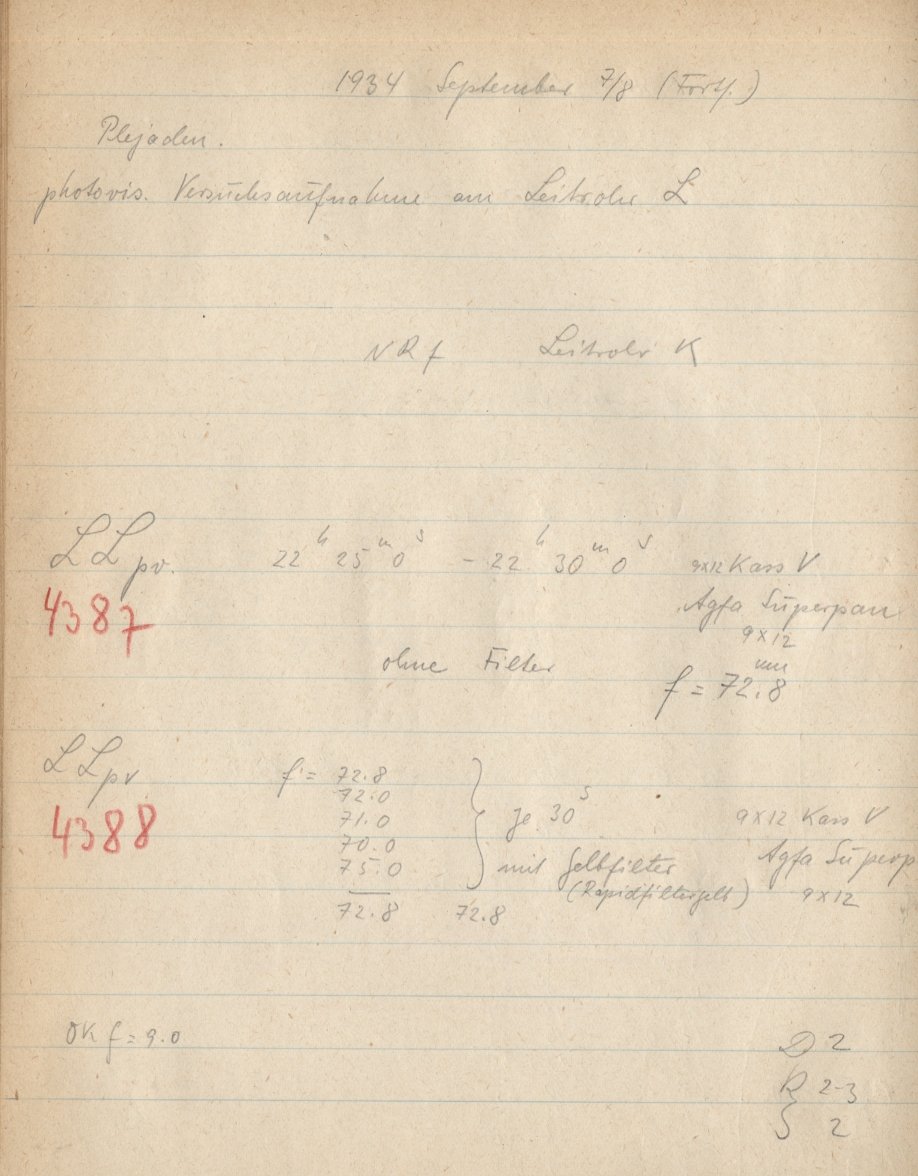 1934 September 7/8 (Forts.)
Plejaden.
photovis. Versuchsaufnahme am Leitrohr L
NRf Leitrohr K
LLpv. 22h 25m 0s - 22h 30m 0s 9x12 Kass V
4387 Agfa Superpan
9x12
ohne Filter f = 72.8 mm
LLpv f = 72.8
72.0
4388 71.0 je 30s 9x12 Kass V
70.0
75.0 mit Gelbfilter Agfa Superp
(Rapidfiltergelb) 9x12
72.8 72.8
OK f = 9.0
D 2
R 2-3
S 2